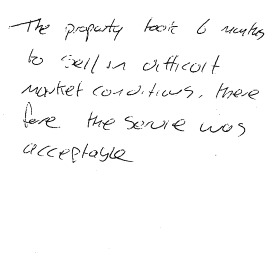 The property took 6 months
to sell in difficult
market conditions, there
fore the service was
acceptable